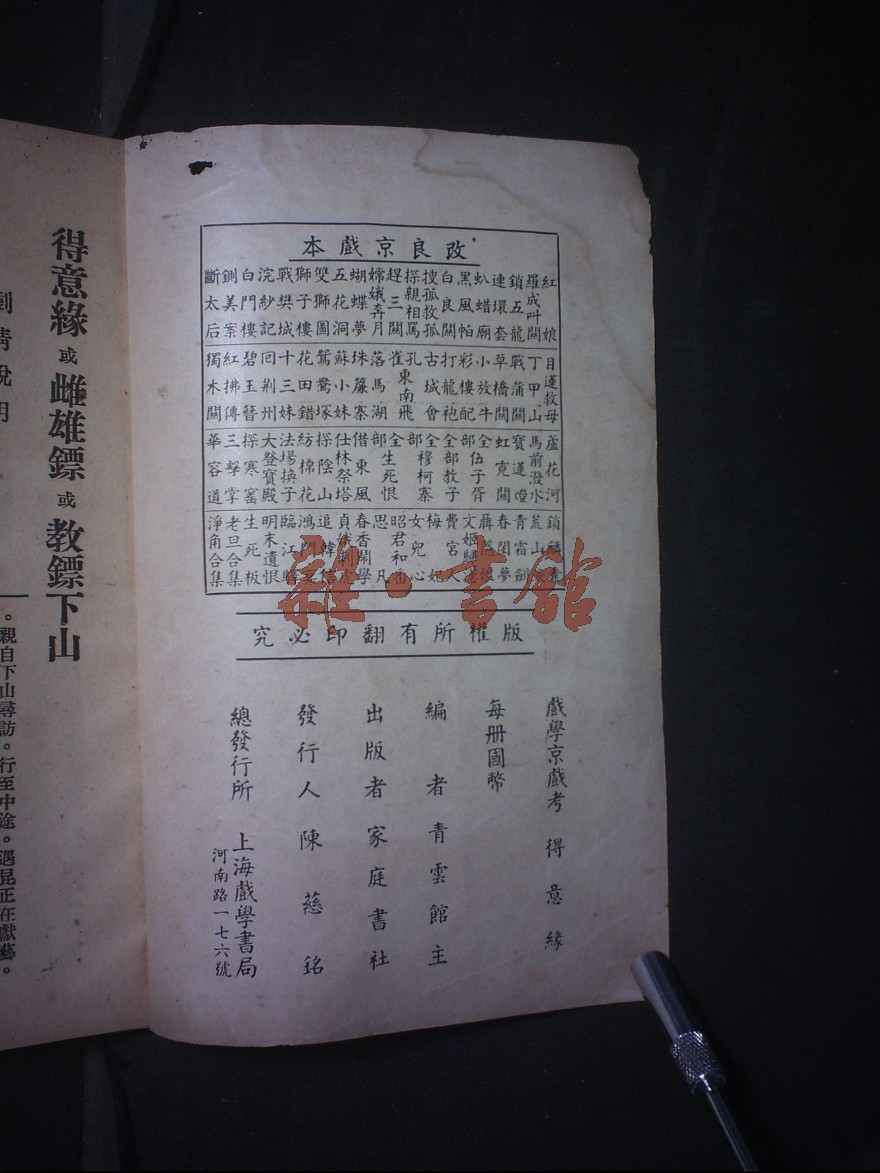 改良京戲本
紅娘
羅成叫關
鎖五龍
連環套
趴蜡廟
黑風帕
白良關
搜孤救孤
探親相罵
趕三關
嫦娥奔月
蝴蝶夢
五花洞
雙獅圖
獅子樓
戰樊城
浣紗記
白門樓
鍘美案
斷太后
目蓮救母
丁甲山
戰蒲關
草橋關
小放牛
彩樓配
打龍袍
古城會
孔雀東南飛
落馬湖
珠簾寨
蘇小妹
鴛鴦塚
花田錯
十三妹
回荆州
碧玉簪
紅拂傳
獨木關
蘆花河
馬前潑水
寶蓮燈
虹霓關
全部伍子胥
全部教子
全部穆柯寨
全部生死恨
借東風
仕林祭塔
探陰山
紡棉花
法場換子
大登寶殿
探寒窰
三擊掌
華容道
荒山
青霜劍
春閨夢
文姬歸
費宮人
梅妃
女兒心
昭君和番
思凡
春香鬧學
貞娥刺虎
追韓信
鴻門宴
臨江驛
明末遺恨
生死板
老旦合集
淨角合集
版權所有翻印必究
戲學京戲考 得意緣
每册國幣
編者青雲館主
出版者家庭書社
發行人陳慈銘
總發行所 上海戲學書局
河南路一七六號
得意緣 或 雌雄鏢 或 教鏢下山
。親自下山尋訪。行至中途。遇昆正在獻藝。
雜·書館